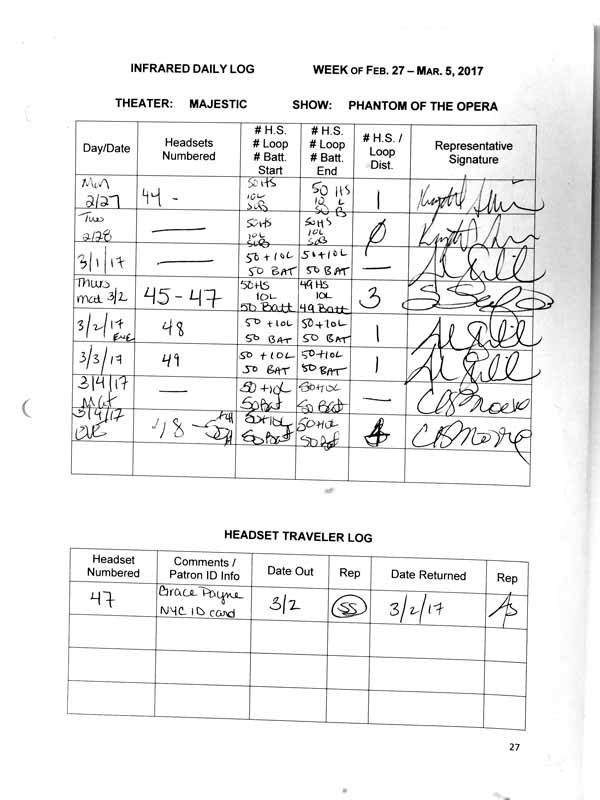 INFRARED DAILY LOG WEEK OF FEB. 27 – MAR. 5, 2017
THEATER: MAJESTIC SHOW: PHANTOM OF THE OPERA
Day/Date
Headsets
Numbered
# H.S.
# Loop
# Batt.
Start
# H.S.
# Loop
# Batt.
End
# H.S. /
Loop
Dist.
Representative
Signature
Mon
2/27
44 -
50 HS
10L
50B
50 HS
10 L
50 B
1
Tue
2/28
—
50HS
10L
50B
50HS
10L
50B
0
3/1/17
—
50+10L
50 BAT
50+10L
50 BAT
—
Thurs
mat 3/2
45-47
50HS
10L
50 Batt
49HS
10L
49 Batt
3
3/2/17
EVE
48
50+10L
50 BAT
50+10L
50 BAT
1
3/3/17
49
50+10L
50 BAT
50+10L
50 BAT
1
3/4/17
Mat
—
50+10L
50Bat
50+10L
50Bat
—
3/4/17
EVE
50+10L
50Bat
50+10L
50Bat
HEADSET TRAVELER LOG
Headset
Numbered
Comments /
Patron ID Info
Date Out
Rep
Date Returned
Rep
47
Grace Payne
NYC ID card
3/2
SS
3/2/17
AS
27